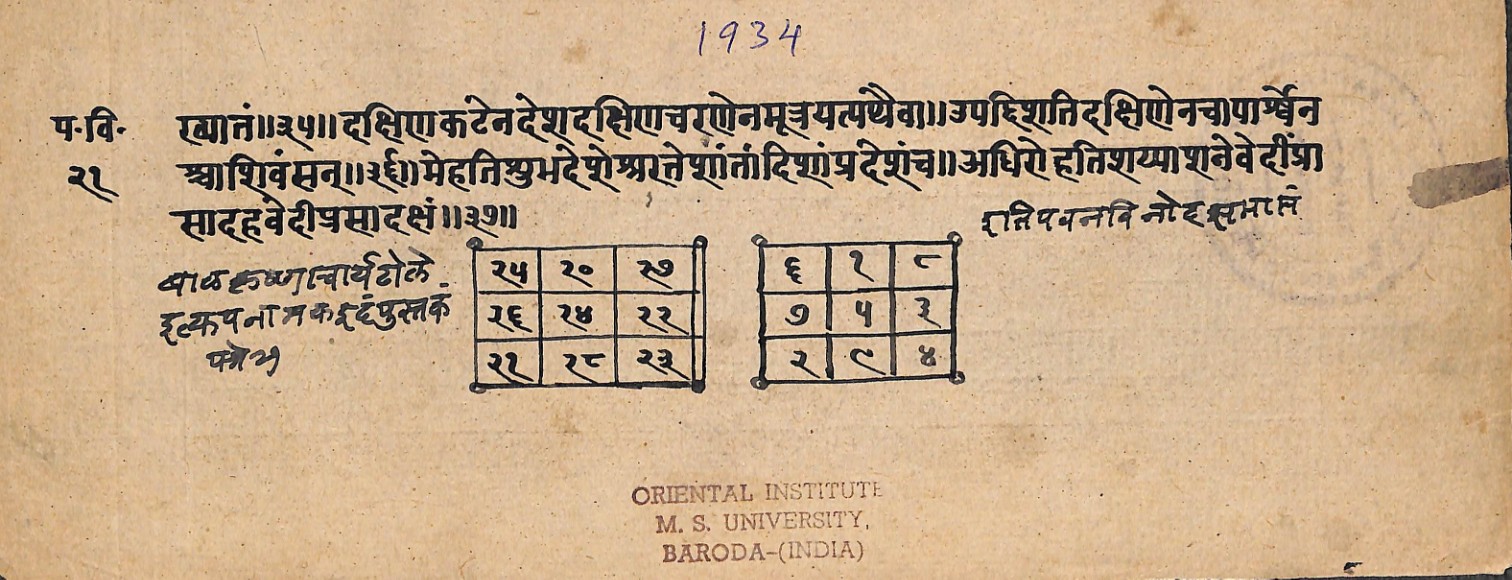 1934
प॰वि॰ ख्यातं॥३५॥दक्षिणकटेनदेशदक्षिणचरणेनमूत्रयत्यथैवा॥उपदिशतिदक्षिणेनचापार्श्वेन
२१ श्चाशिवंसन्॥३६॥मेहतिशुभदेशेश्मरतेशांतांदिशांप्रदेशंच॥अधिरोहतिशय्याशनेवेदींप्रा
सादहवेदीप्रसादक्षं॥३७॥
इतिपवनविनोदसमाप्तं
बाळकृष्णाचार्यढोले
इत्युपनामकइदंपुस्तकं
२५ २० २७
२६ २४ २२
२१ २८ २३
६ १ ८
७ ५ ३
२ ९ ४
ORIENTAL INSTITUTE
M. S. UNIVERSITY,
BARODA-(INDIA)